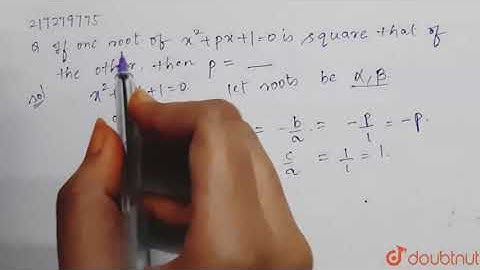 217279775
Q If one root of x²+px+1=0 is square that of
the other, then p = __
sol x²+ +1=0. let roots be α, β
= -b/a = -p/1 = -p.
c/a = 1/1 = 1.
doubtnut